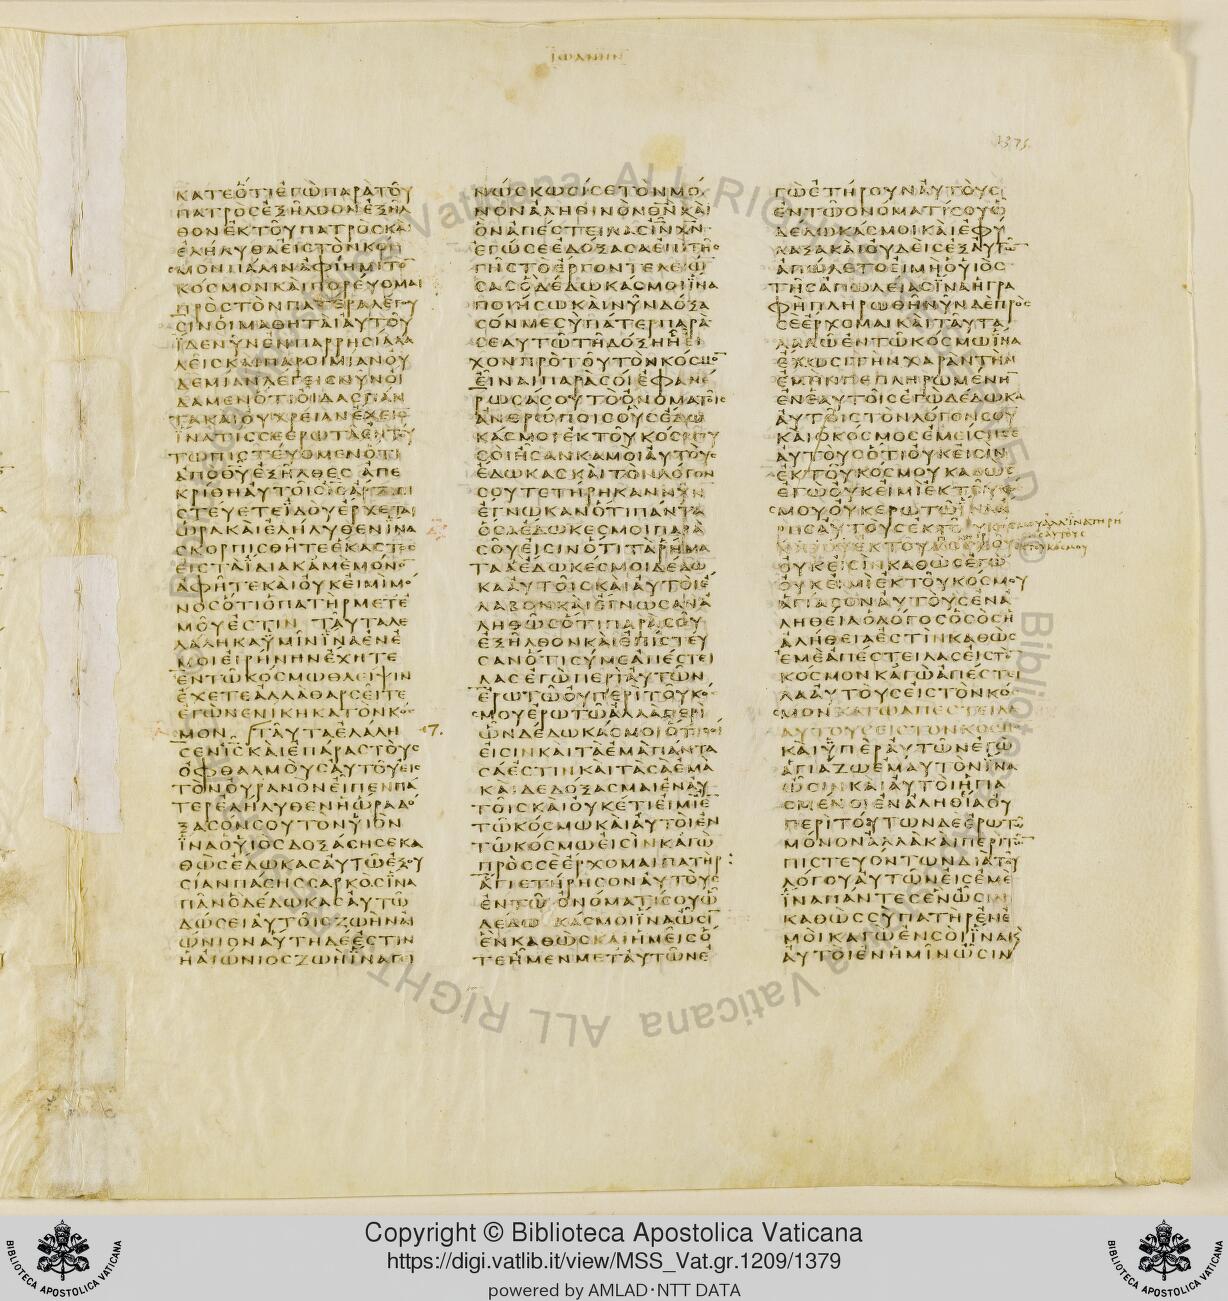 ΙΩΑΝΝΗΝ
1375
ΚΑΤΕΟΤΙΕΓΩΠΑΡΑΤΟΥ
ΠΑΤΡΟΣΕΞΗΛΘΟΝΕΞΗΛ
ΘΟΝΕΚΤΟΥΠΑΤΡΟΣΚΑΙ
ΕΛΗΛΥΘΑΕΙΣΤΟΝΚΟΣ
ΜΟΝΠΑΛΙΝΑΦΙΗΜΙΤΟ
ΚΟΣΜΟΝΚΑΙΠΟΡΕΥΟΜΑΙ
ΠΡΟΣΤΟΝΠΑΤΕΡΑΛΕΓΟΥ
ΣΙΝΟΙΜΑΘΗΤΑΙΑΥΤΟΥ
ΪΔΕΝΥΝΕΝΠΑΡΡΗΣΙΑΛΑ
ΛΕΙΣΚΑΙΠΑΡΟΙΜΙΑΝΟΥ
ΔΕΜΙΑΝΛΕΓΕΙΣΝΥΝΟΙ
ΔΑΜΕΝΟΤΙΟΙΔΑΣΠΑΝ
ΤΑΚΑΙΟΥΧΡΕΙΑΝΕΧΕΙΣ
ΪΝΑΤΙΣΣΕΕΡΩΤΑΕΝΤΟΥ
ΤΩΠΙΣΤΕΥΟΜΕΝΟΤΙ
ΑΠΟΘΥΕΞΗΛΘΕΣ ΑΠΕ
ΚΡΙΘΗΑΥΤΟΙΣΙΣΑΡΤΙΠΙ
ΣΤΕΥΕΤΕΙΔΟΥΕΡΧΕΤΑΙ
ΩΡΑΚΑΙΕΛΗΛΥΘΕΝΪΝΑ
ΣΚΟΡΠΙΣΘΗΤΕΕΚΑΣΤΟΣ
ΕΙΣΤΑΪΔΙΑΚΑΜΕΜΟΝΟ
ΑΦΗΤΕΚΑΙΟΥΚΕΙΜΙΜΟ
ΝΟΣΟΤΙΟΠΑΤΗΡΜΕΤΕ
ΜΟΥΕΣΤΙΝ ΤΑΥΤΑΛΕ
ΛΑΛΗΚΑΫΜΙΝΪΝΑΕΝΕ
ΜΟΙΕΙΡΗΝΗΝΕΧΗΤΕ
ΕΝΤΩΚΟΣΜΩΘΛΕΙΨΙΝ
ΕΧΕΤΕΑΛΛΑΘΑΡΣΕΙΤΕ
ΕΓΩΝΕΝΙΚΗΚΑΤΟΝΚΟΣ
ΜΟΝ ΤΑΥΤΑΕΛΑΛΗ
ΣΕΝΙΣΚΑΙΕΠΑΡΑΣΤΟΥΣ
ΟΦΘΑΛΜΟΥΣΑΥΤΟΥΕΙΣ
ΤΟΝΟΥΡΑΝΟΝΕΙΠΕΝΠΑ
ΤΕΡΕΛΗΛΥΘΕΝΗΩΡΑΔΟ
ΞΑΣΟΝΣΟΥΤΟΝΫΙΟΝ
ΪΝΑΟΫΙΟΣΔΟΞΑΣΗΣΕΚΑ
ΘΩΣΕΔΩΚΑΣΑΥΤΩΕΞΟΥ
ΣΙΑΝΠΑΣΗΣΣΑΡΚΟΣΪΝΑ
ΠΑΝΟΔΕΔΩΚΑΣΑΥΤΩ
ΔΩΣΕΙΑΥΤΟΙΣΖΩΗΝΑΙ
ΩΝΙΟΝΑΥΤΗΔΕΕΣΤΙΝ
ΗΑΙΩΝΙΟΣΖΩΗΪΝΑΓΙ
ΝΩΣΚΩΣΙΣΕΤΟΝΜΟ
ΝΟΝΑΛΗΘΙΝΟΝΘΝΚΑΙ
ΟΝΑΠΕΣΤΕΙΛΑΣΙΝΧΝ
ΕΓΩΣΕΕΔΟΞΑΣΑΕΠΙΤΗΣ
ΓΗΣΤΟΕΡΓΟΝΤΕΛΕΙΩ
ΣΑΣΟΔΕΔΩΚΑΣΜΟΙΪΝΑ
ΠΟΙΗΣΩΚΑΙΝΥΝΔΟΞΑ
ΣΟΝΜΕΣΥΠΑΤΕΡΠΑΡΑ
ΣΕΑΥΤΩΤΗΔΟΞΗΗΕΙ
ΧΟΝΠΡΟΤΟΥΤΟΝΚΟΣΜΟ
ΕΙΝΑΙΠΑΡΑΣΟΙΕΦΑΝΕ
ΡΩΣΑΣΟΥΤΟΟΝΟΜΑΤΟΙΣ
ΑΝΘΡΩΠΟΙΣΟΥΣΕΔΩ
ΚΑΣΜΟΙΕΚΤΟΥΚΟΣΜΟΥ
ΣΟΙΗΣΑΝΚΑΜΟΙΑΥΤΟΥΣ
ΕΔΩΚΑΣΚΑΙΤΟΝΛΟΓΟΝ
ΣΟΥΤΕΤΗΡΗΚΑΝΝΥΝ
ΕΓΝΩΚΑΝΟΤΙΠΑΝΤΑ
ΟΣΑΕΔΩΚΕΣΜΟΙΠΑΡΑ
ΣΟΥΕΙΣΙΝΟΤΙΤΑΡΗΜΑ
ΤΑΑΕΔΩΚΕΣΜΟΙΔΕΔΩ
ΚΑΑΥΤΟΙΣΚΑΙΑΥΤΟΙΕ
ΛΑΒΟΝΚΑΙΕΓΝΩΣΑΝΑ
ΛΗΘΩΣΟΤΙΠΑΡΑΣΟΥ
ΕΞΗΛΘΟΝΚΑΙΕΠΙΣΤΕΥ
ΣΑΝΟΤΙΣΥΜΕΑΠΕΣΤΕΙ
ΛΑΣΕΓΩΠΕΡΙΑΥΤΩΝ
ΕΡΩΤΩΟΥΠΕΡΙΤΟΥΚΟ
ΣΜΟΥΕΡΩΤΩΑΛΛΑΠΕΡΙ
ΩΝΔΕΔΩΚΑΣΜΟΙΟΤΙΣΟΙ
ΕΙΣΙΝΚΑΙΤΑΕΜΑΠΑΝΤΑ
ΣΑΕΣΤΙΝΚΑΙΤΑΣΑΕΜΑ
ΚΑΙΔΕΔΟΞΑΣΜΑΙΕΝΑΥ
ΤΟΙΣΚΑΙΟΥΚΕΤΙΕΙΜΙΕ
ΤΩΚΟΣΜΩΚΑΙΑΥΤΟΙΕΝ
ΤΩΚΟΣΜΩΕΙΣΙΝΚΑΓΩ
ΠΡΟΣΣΕΕΡΧΟΜΑΙΠΑΤΗΡ
ΑΓΙΕΤΗΡΗΣΟΝΑΥΤΟΥΣ
ΕΝΤΩ ΟΝΟΜΑΤΙΣΟΥΩ
ΔΕΔΩ ΚΑΣΜΟΙΪΝΑΩΣΙ
ΕΝΚΑΘΩΣΚΑΙΗΜΕΙΣΟ
ΤΕΗΜΕΝΜΕΤΑΥΤΩΝΕ
ΓΩΕΤΗΡΟΥΝΑΥΤΟΥΣ
ΕΝΤΩΟΝΟΜΑΤΙΣΟΥΩ
ΔΕΔΩΚΑΣΜΟΙΚΑΙΕΦΥ
ΛΑΞΑΚΑΙΟΥΔΕΙΣΕΞΑΥΤΩ
ΑΠΩΛΕΤΟΕΙΜΗΟΫΙΟΣ
ΤΗΣΑΠΩΛΕΙΑΣΪΝΑΗΓΡΑ
ΦΗΠΛΗΡΩΘΗΝΥΝΔΕΠΡΟΣ
ΣΕΕΡΧΟΜΑΙΚΑΙΤΑΥΤΑ
ΛΑΛΩΕΝΤΩΚΟΣΜΩΪΝΑ
ΕΧΩΣΙΤΗΝΧΑΡΑΝΤΗΝ
ΕΜΗΝΠΕΠΛΗΡΩΜΕΝΗ
ΕΝΕΑΥΤΟΙΣΕΓΩΔΕΔΩΚΑ
ΑΥΤΟΙΣΤΟΝΛΟΓΟΝΣΟΥ
ΚΑΙΟΚΟΣΜΟΣΕΜΕΙΣΗΣΕ
ΑΥΤΟΥΣΟΤΙΟΥΚΕΙΣΙΝ
ΕΚΤΟΥΚΟΣΜΟΥΚΑΘΩΣ
ΕΓΩΟΥΚΕΙΜΙΕΚΤΟΥΚΟ
ΣΜΟΥΟΥΚΕΡΩΤΩΪΝΑΑ
ΡΗΣΑΥΤΟΥΣΕΚΤΟΥ
ΟΥΚΕΙΣΙΝΚΑΘΩΣΕΓΩ
ΟΥΚΕΙΜΙΕΚΤΟΥΚΟΣΜΟΥ
ΑΓΙΑΣΟΝΑΥΤΟΥΣΕΝΑ
ΛΗΘΕΙΑΟΛΟΓΟΣΟΣΟΣΗ
ΑΛΗΘΕΙΑΕΣΤΙΝΚΑΘΩΣ
ΕΜΕΑΠΕΣΤΕΙΛΑΣΕΙΣΤΟ
ΚΟΣΜΟΝΚΑΓΩΑΠΕΣΤΕΙ
ΛΑΑΥΤΟΥΣΕΙΣΤΟΝΚΟ
ΣΜΟΝ ΚΑΓΩΑΠΕΣΤΕΙΛΑ
ΑΥΤΟΥΣΕΙΣΤΟΝΚΟΣΜ
ΚΑΙΫΠΕΡΑΥΤΩΝΕΓΩ
ΑΓΙΑΖΩΕΜΑΥΤΟΝΪΝΑ
ΩΣΙΝΚΑΙΑΥΤΟΙΗΓΙΑ
ΣΜΕΝΟΙΕΝΑΛΗΘΙΑΟΥ
ΠΕΡΙΤΟΥΤΩΝΔΕΕΡΩΤΩ
ΜΟΝΟΝΑΛΛΑΚΑΙΠΕΡΙΤΩ
ΠΙΣΤΕΥΟΝΤΩΝΔΙΑΤΟΥ
ΛΟΓΟΥΑΥΤΩΝΕΙΣΕΜΕ
ΪΝΑΠΑΝΤΕΣΕΝΩΣΙΝ
ΚΑΘΩΣΣΥΠΑΤΗΡΕΝΕ
ΜΟΙΚΑΓΩΕΝΣΟΙΪΝΑΚΑΙ
ΑΥΤΟΙΕΝΗΜΙΝΩΣΙΝ
Copyright © Biblioteca Apostolica Vaticana
https://digi.vatlib.it/view/MSS_Vat.gr.1209/1379
powered by AMLAD·NTT DATA
BIBLIOTECA APOSTOLICA VATICANA
BIBLIOTECA APOSTOLICA VATICANA